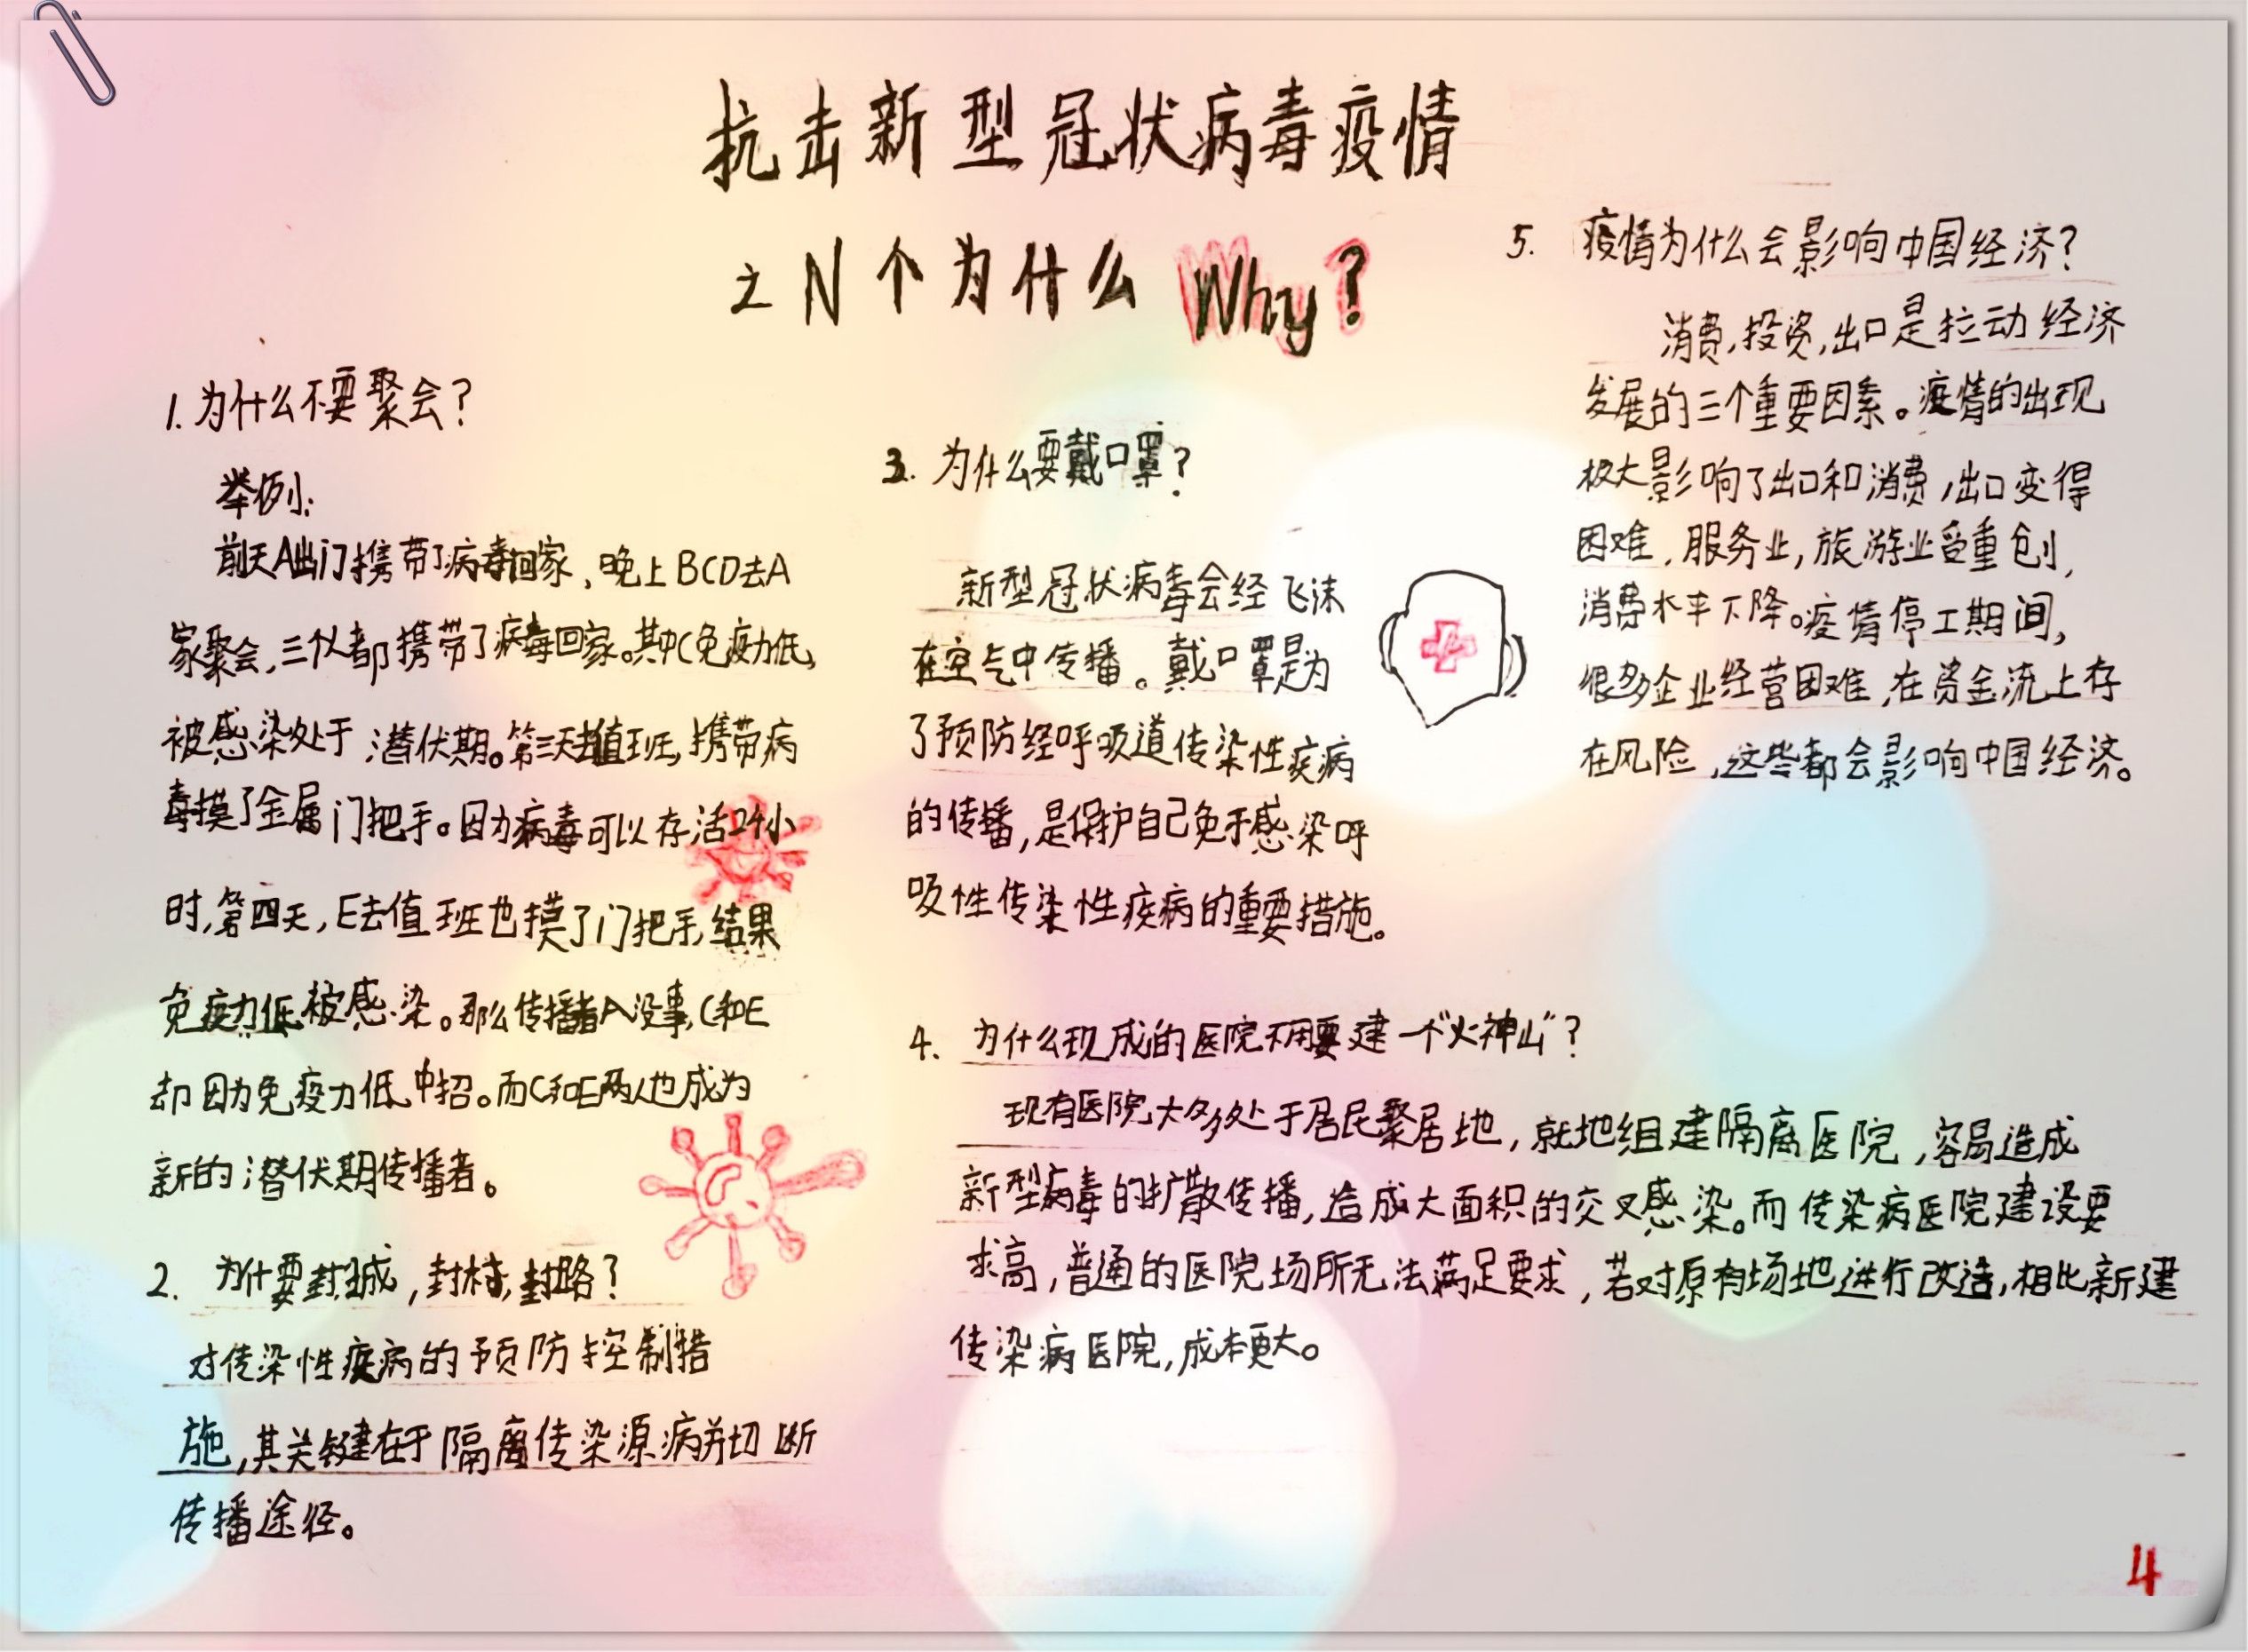 抗击新型冠状病毒疫情
之N个为什么Why?
1.为什么不要聚会?
举例:
前天A出门携带了病毒回家,晚上BCD去A
家聚会,三个人都携带了病毒回家。其中C免疫力低,
被感染处于潜伏期。第三天去值班,携带病
毒摸了金属门把手。因为病毒可以存活24小
时,第四天,E去值班也摸了门把手,结果
免疫力低被感染。那么传播者A没事,C和E
却因为免疫力低中招。而C和E两人也成为
新的潜伏期传播者。
2. 为什要封城,封村,封路?
对传染性疾病的预防控制措
施,其关键在于隔离传染源病并切断
传播途径。
3. 为什么要戴口罩?
新型冠状病毒会经飞沫
在空气中传播。戴口罩是为
了预防经呼吸道传染性疾病
的传播,是保护自己免于感染呼
吸性传染性疾病的重要措施。
4. 为什么现成的医院不用要建一个“火神山”?
现有医院大多处于居民聚居地,就地组建隔离医院,容易造成
新型病毒的扩散传播,造成大面积的交叉感染。而传染病医院建设要
求高,普通的医院场所无法满足要求,若对原有场地进行改造,相比新建
传染病医院,成本更大。
5. 疫情为什么会影响中国经济?
消费,投资,出口是拉动经济
发展的三个重要因素。疫情的出现
极大影响了出口和消费,出口变得
困难,服务业,旅游业受重创,
消费水平下降。疫情停工期间,
很多企业经营困难,在资金流上存
在风险,这些都会影响中国经济。
4